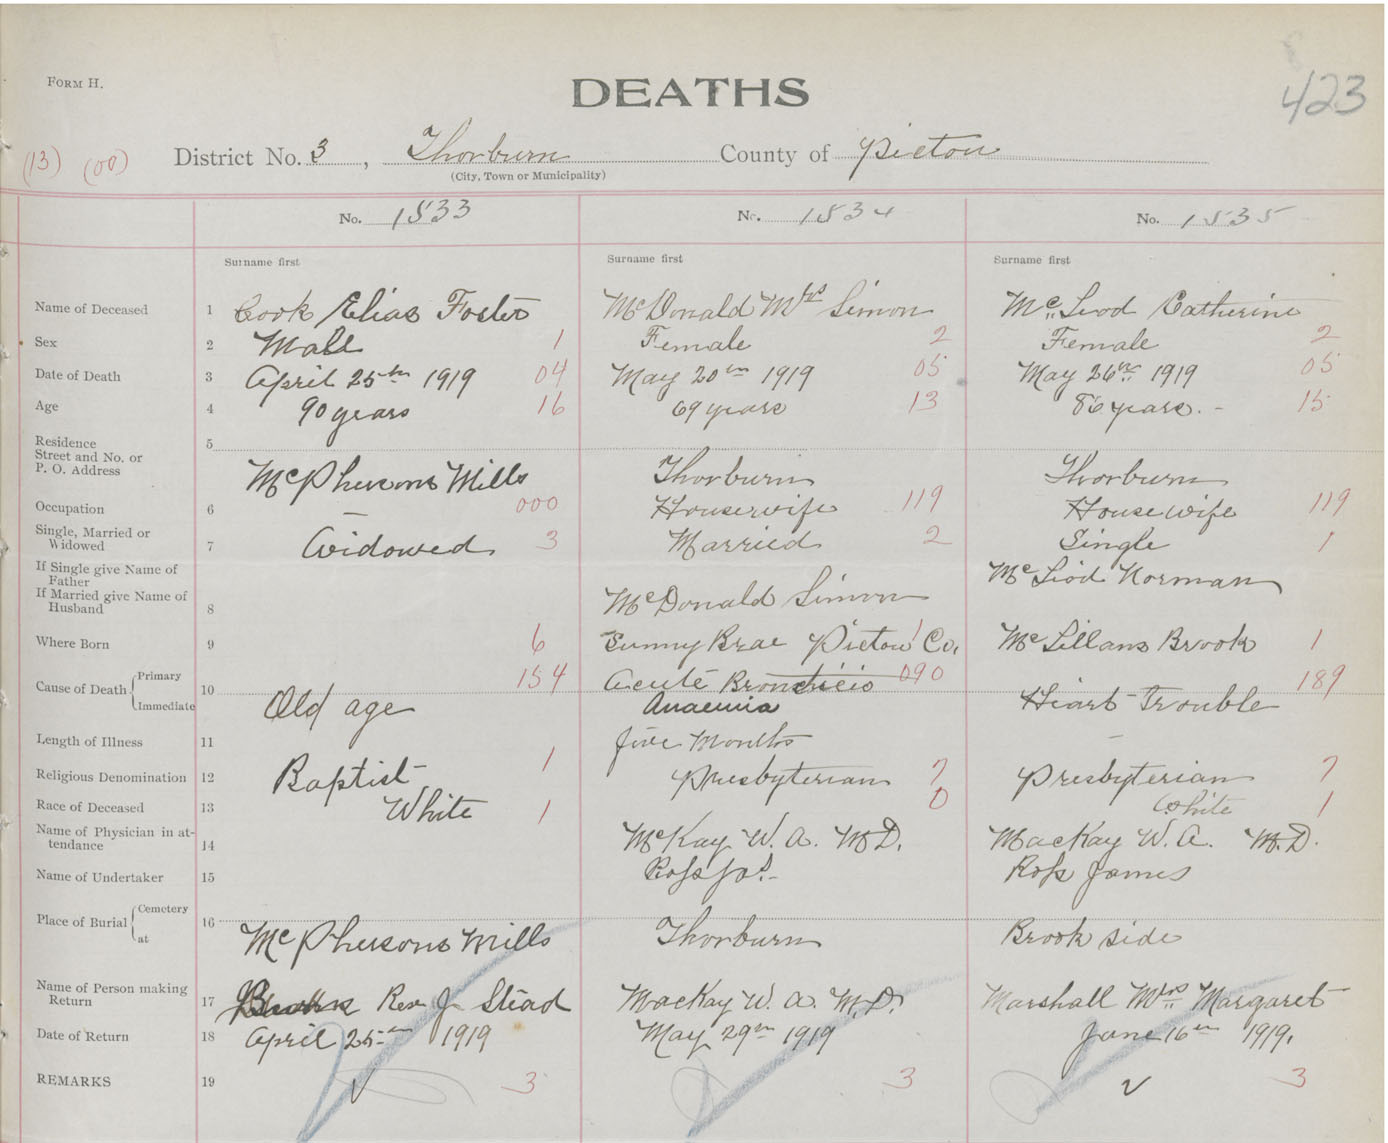 FORM H.
DEATHS
423
(13) (00) District No. 3, Thorburn County of Pictou
(City, Town or Municipality)
No. 1533 No. 1534 No. 1535
Surname first Surname first Surname first
Name of Deceased 1 Cook Elias Foster McDonald Mrs Simon McLeod Catherine
Sex 2 Male 1 Female 2 Female 2
Date of Death 3 April 25th 1919 04 May 20th 1919 05 May 26th 1919 05
Age 4 90 years 16 69 years 13 86 years. - 15
Residence
Street and No. or
P. O. Address 5 McPhersons Mills Thorburn Thorburn
Occupation 6 — 000 Housewife 119 House wife 119
Single, Married or
Widowed 7 Widowed 3 Married 2 Single 1
If Single give Name of
Father McLeod Norman
If Married give Name of
Husband 8 McDonald Simon
Where Born 9 6 Sunny Brae Pictou Co. 1 McLellans Brook 1
Cause of Death { Primary 154 Acute Bronchitis 090 189
Immediate 10 Old age Anaemia Heart Trouble
Length of Illness 11 five Months —
Religious Denomination 12 Baptist 1 Presbyterian 7 Presbyterian 7
Race of Deceased 13 White 1 0 White 1
Name of Physician in at-
tendance 14 McKay W. A. M.D. MacKay W. A. M.D.
Name of Undertaker 15 Ross Jas. Ross James
Place of Burial { Cemetery
at 16 McPhersons Mills Thorburn Brook side
Name of Person making
Return 17 Rev J Stead MacKay W. A. M.D. Marshall Mrs Margaret
Date of Return 18 April 25th 1919 May 29th 1919 June 16th 1919.
REMARKS 19 3 3 3